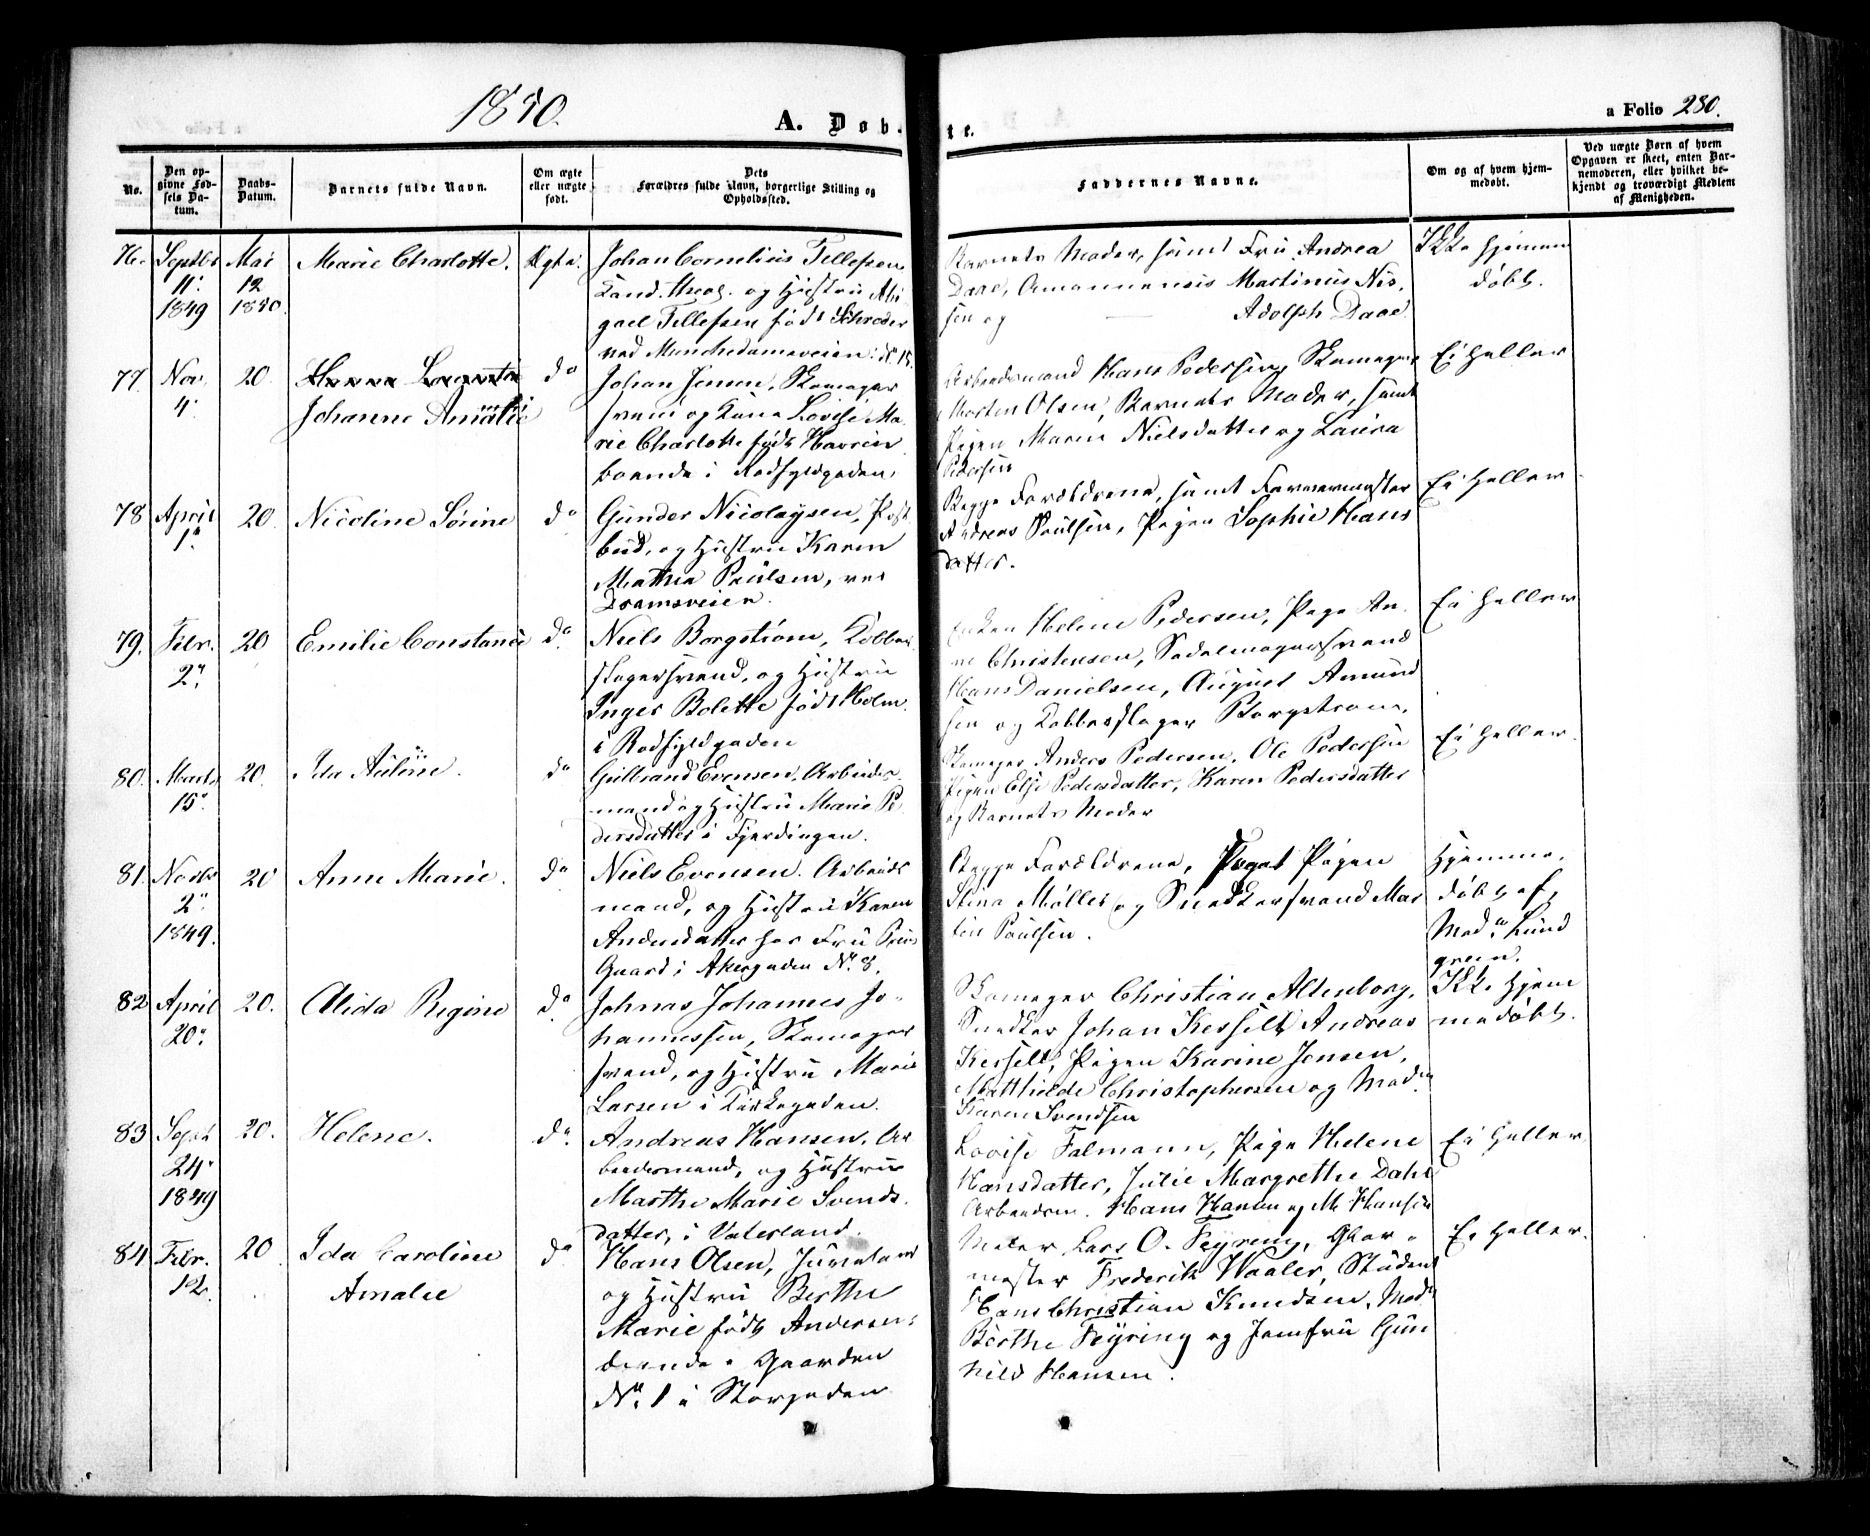 1850.
A. Døb-
te.
a Folio 280.
No.
Den opgivne Fødsels Datum.
Daabs-Datum.
Barnets fulde Navn.
Om ægte eller uægte født.
Dets Forældres fulde Navn, borgerlige Stilling og Opholdssted.
Faddernes Navne.
Om og af hvem hjemmedøbt.
Ved uægte Børn af hvem Opgaven er skeet, enten Barnemoderen, eller hvilket bekjendt og troværdigt Medlem af Menigheden.
76.
Septbr
11.
1849
Mai
12
1850.
Marie Charlotte.
Ægte.
Johan Cornelius Tellefsen
Cand. theol. og Hustru Abi-
gael Tellefsen født Schrøder
ved Munchedamsveien No 15.
Barnets Moder, samt Fru Andrea
Daae, Amanuensis Martinus Nis-
sen og Adolph Daae.
Ikke hjemme
døbt.
77.
Nov.
4
20.
Johanne Amalie
do
Johan Jensen, Skomager
svend og Kone Lovise Ma-
rie Charlotte født
boende i Rødfyldgaden.
Arbeidsmand Hans Pedersen, Skomager
Morten Olsen, Barnets Moder, samt
Pigen Maren Nielsdatter og Laura
Pedersen
Ei heller
78
April
1.
20.
Nicoline Sørine
do
Gunder Nicolaysen, Post
bud, og Hustru Karen
Mathea Paulsen, ved
Dramsveien.
Begge Forældrene, samt Farvermester
Andreas Paulsen, Pigen Sophie Hans
datter.
Ei heller
79.
Febr.
2.
20
Emilie Constance
do
Niels Borgstrøm, Kobber
slagersvend, og Hustru
Inger Bolette født Holm
i Rødfyldgaden
Enken Helene Pedersen, Pige An-
ne Christensen, Sadelmagersvend
Hans Danielsen, August Amund
sen og Kobberslager Borgstrøm.
Ei heller
80.
Marts
15.
20.
Ida Auline.
do
Gulbrand Evensen, Arbeids-
mand og Hustru Marie Pe-
dersdatter i Fjerdingen.
Skomager Anders Pedersen, Ole Pedersen
Pigen Else Pedersdatter, Karen Pedersdatter
og Barnets Moder
Ei heller.
81.
Novbr
2.
1849.
20
Anne Marie.
do
Niels Evensen, Arbeids
mand, og Hustru Karen
Andersdatter hos Fru
i Akersgaden No 8.
Begge Forældrene, Pigen
Stina Møller og Snedkersvend Mar
tin Paulsen.
Hjemme-
døbt af
Mad. Lund
green.
82
April
20.
20.
Alida Regine
do
Johnas Johannes Jo-
hannessen, Skomager
svend, og Hustru Marie
Larsen i Kirkegaden.
Skomager Christian Altenborg,
Snedker Johan Kesselt, Andreas
Kesselt, Pigen Karine Jensen,
Matthilde Christophersen og Mad.
Karen Svendsen
Ikke hjem
medøbt.
83
Sept
24
1849
20.
Helene.
do
Andreas Hansen, Ar-
beidsmand, og Hustrue
Marthe Marie Svends
datter, i Vaterland.
Lovise Falmann, Pige Helene
Hansdatter, Julie Margrethe Dahl
Arbeidsm. Hans Hansen og M. Hansen
Ei heller
84
Febr.
12.
20
Ida Caroline
Amalie
do
Hans Olsen, Juveleer
og Hustru Berthe
Marie født Andersen,
boende i Gaarden
No 1 i Storgaden
Maler Lars O. Feyring, Glar-
mester Frederik Waaler, Student
Hans Christian Knudsen, Mad.
Berthe Feyring og Jomfru Gun
hild Hansen.
Ei heller.